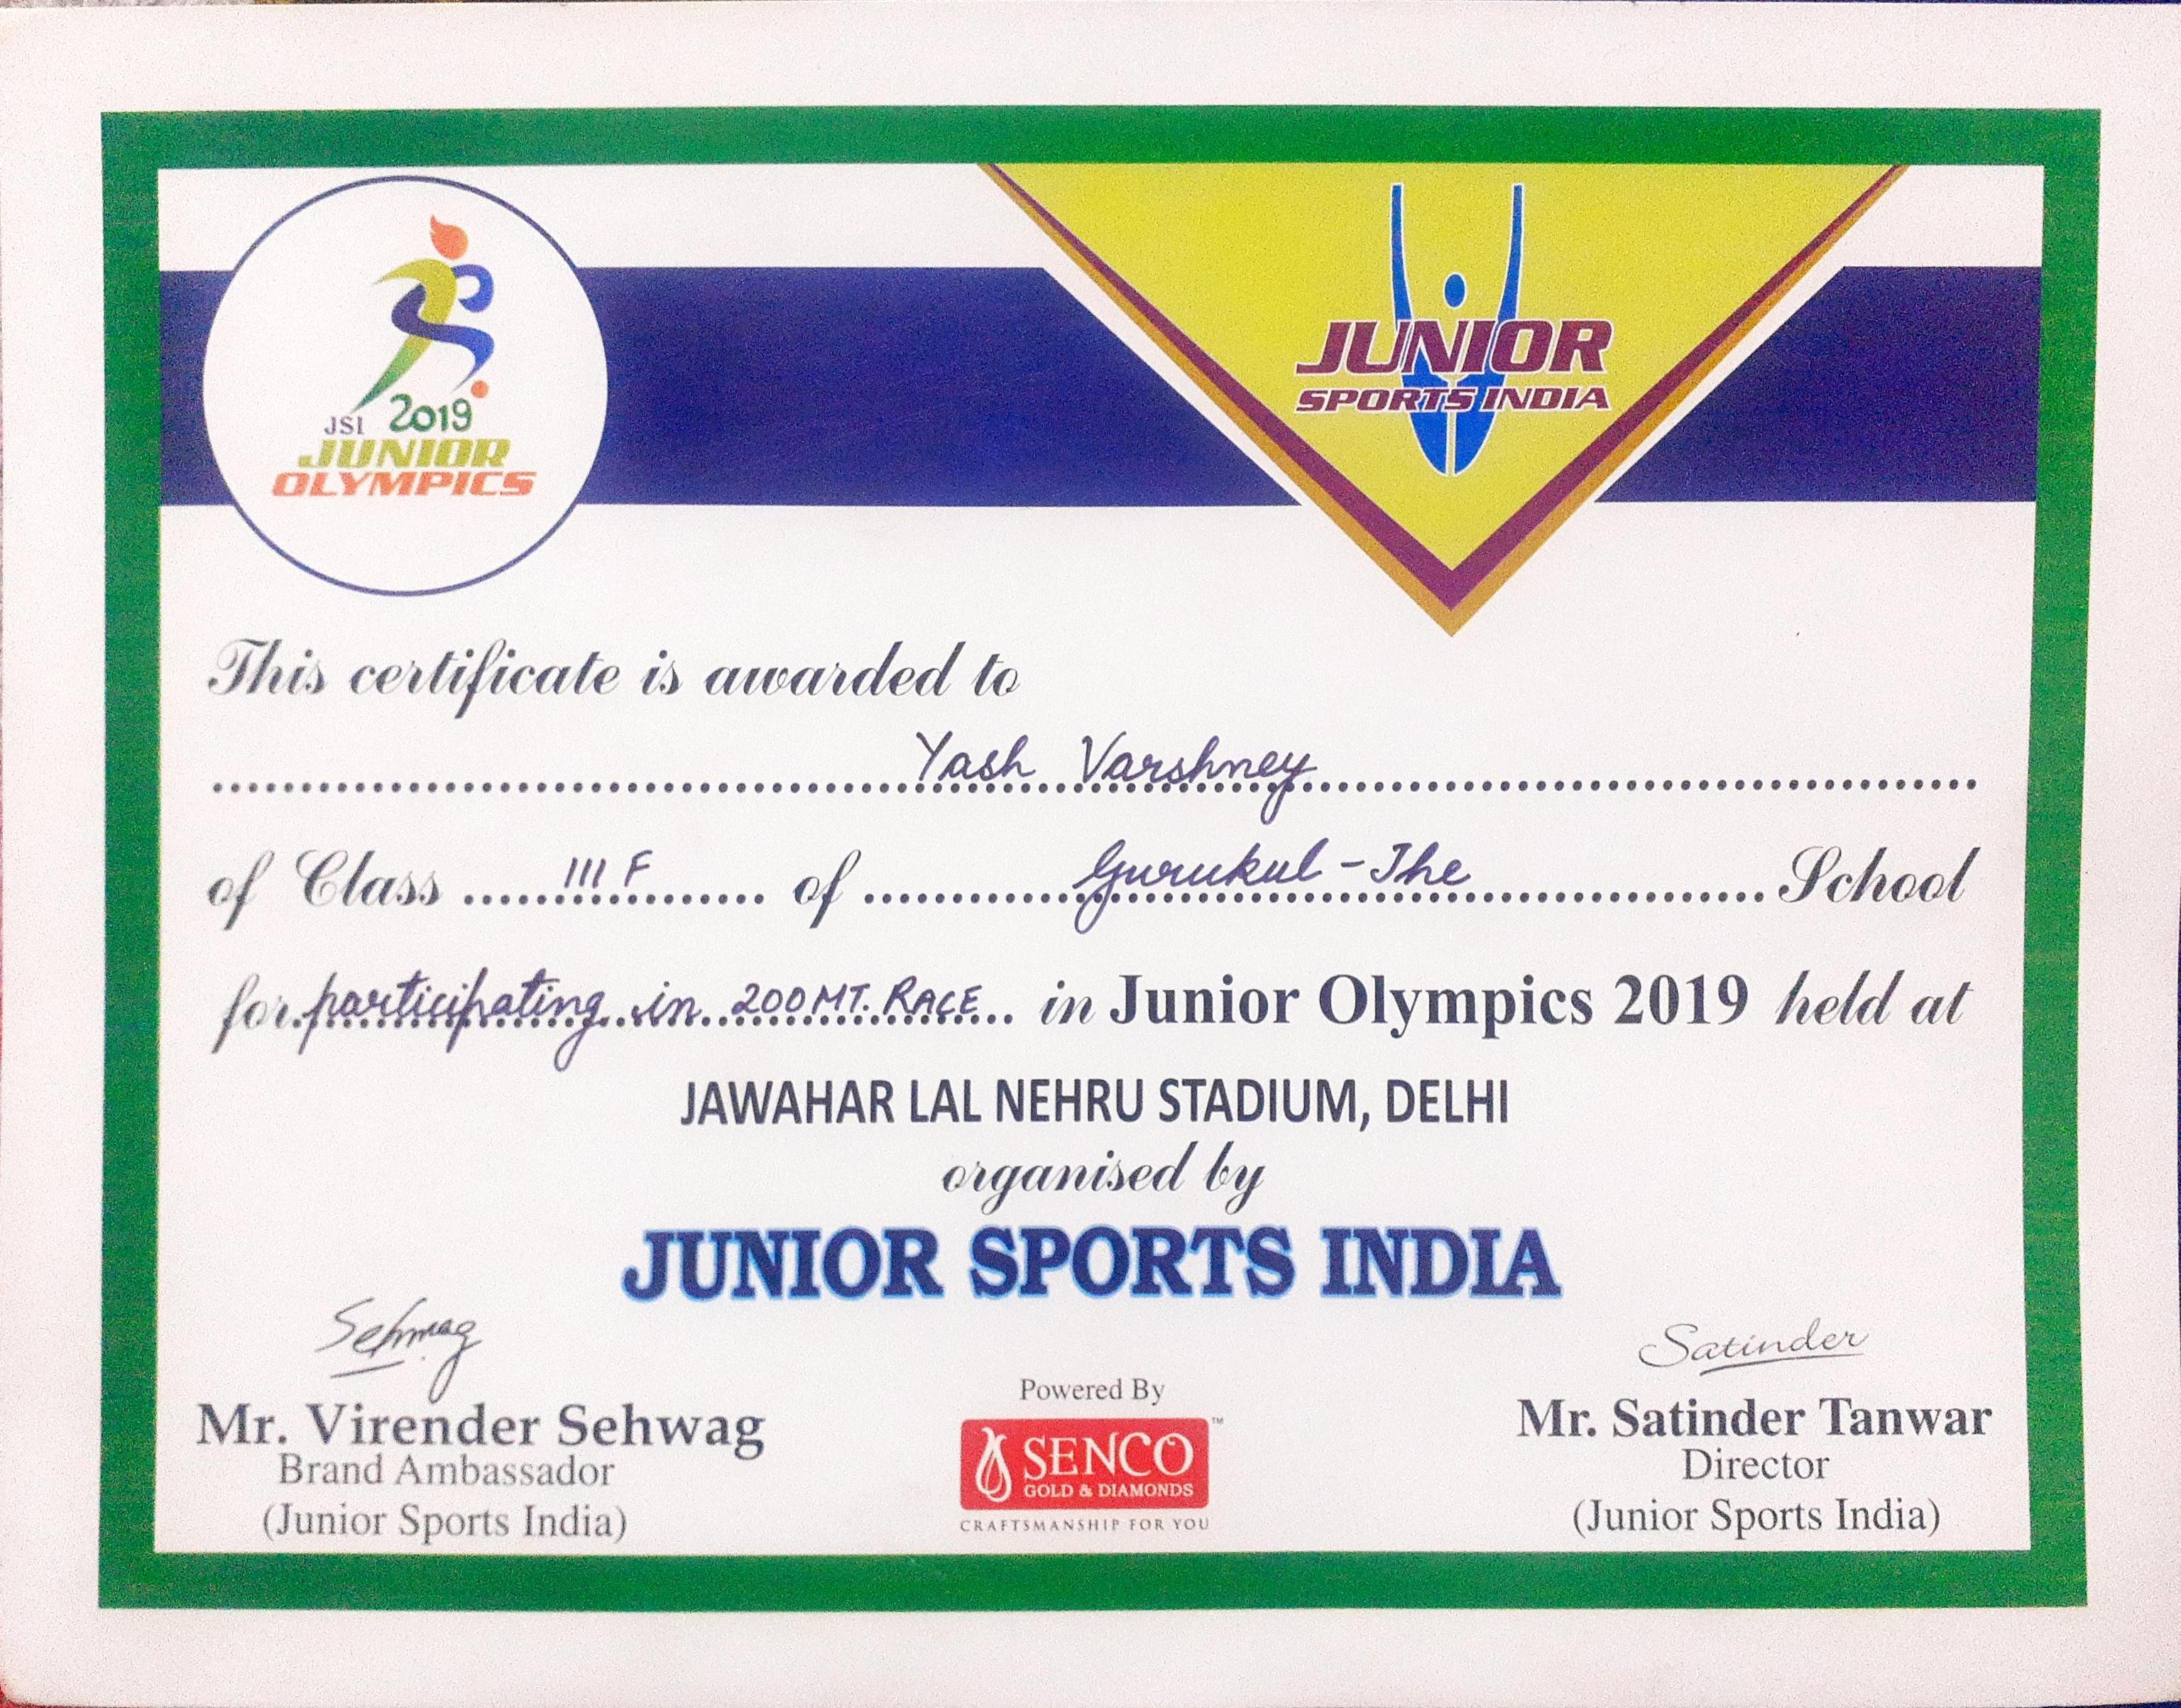 JSI 2019
JUNIOR
OLYMPICS
JUNIOR
SPORTS INDIA
This certificate is awarded to
Yash Varshney
of Class ...... III F ........ of ............ Gurukul - The ................ School
for participating in 200 MT. RACE ... in Junior Olympics 2019 held at
JAWAHAR LAL NEHRU STADIUM, DELHI
organised by
JUNIOR SPORTS INDIA
Sehwag
Mr. Virender Sehwag
Brand Ambassador
(Junior Sports India)
Powered By
SENCO™
GOLD & DIAMONDS
CRAFTSMANSHIP FOR YOU
Satinder
Mr. Satinder Tanwar
Director
(Junior Sports India)